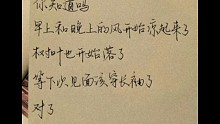 你知道吗
早上和晚上的风开始凉起来了
树叶也开始落了
等下次见面该穿长袖了
对了